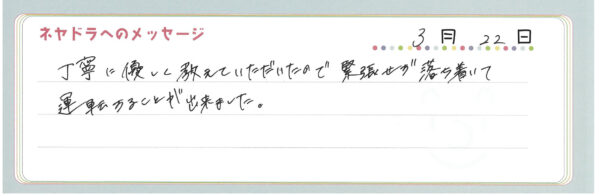 ネヤドラへのメッセージ
3月 22日
丁寧に優しく教えていただいたので 緊張せず落ち着いて
運転することが出来ました。